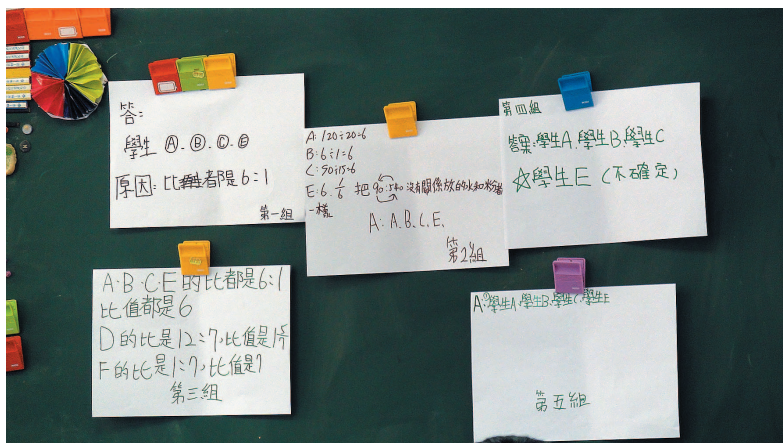 答:
學生 Ⓐ.Ⓑ.Ⓒ.Ⓔ
原因:比都是6:1
第一組
A:120÷20=6
B:6÷1=6
C:50÷15=6
E:6. 1/6 把90:540沒有關係放的水和粉
一樣
A:A.B.C.E.
第2組
第四組
答案:學生A.學生B.學生C
☆學生E(不確定)
A·B·C·E的比都是6:1
比值都是6
D的比是12:7,比值是1 5/7
F的比是1:7,比值是7
第三組
A:學生A.學生B.學生C.學生E
第五組